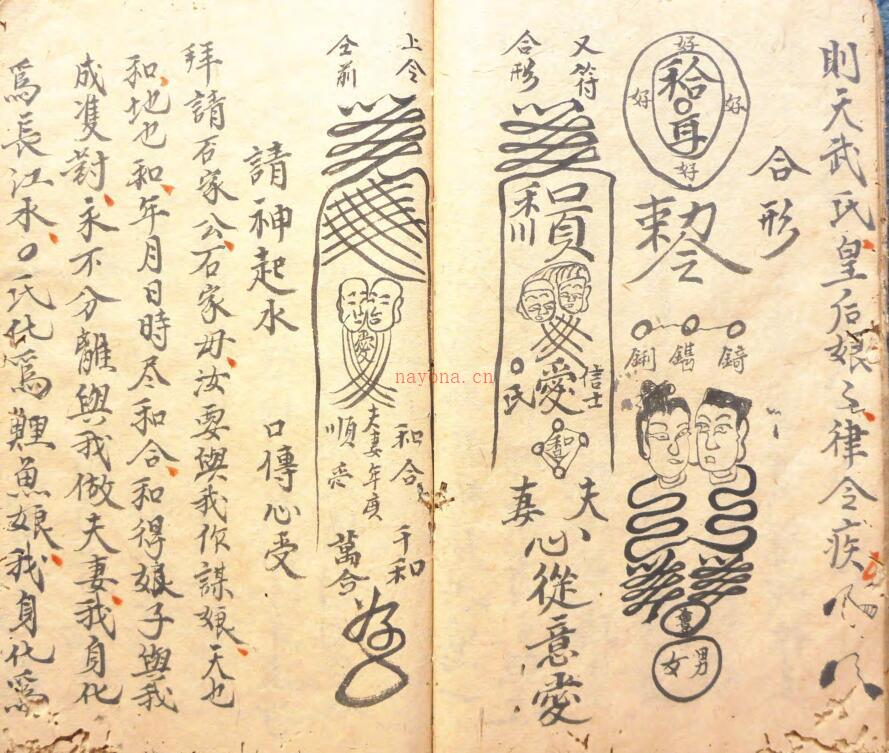 則天武氏皇后娘之律令疾
合形
好
好 好
好
和合
耳
勅令
鉶 鐫 錡
喜
女 男
又符
合形
口貢
和川
愛
信士
氏
夫
妻
心從意愛
上仝
仝前
愛
和合
夫妻年庚
順愛
千和
萬合
請神起水 口傳心受
拜請石家公石家母汝要與我作謀娘天也
和地也和年月日時尽和合和得娘子與我
成雙對永不分離與我做夫妻我身化
爲長江水○氏化爲鯉魚娘我身化爲
nayona.cn